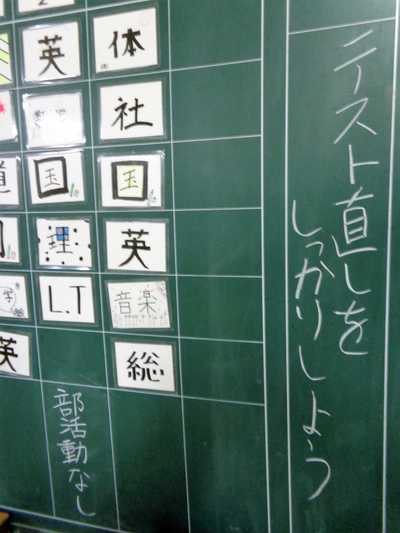 テスト直しを
しっかりしよう
体
社
国
英
音楽
総
英
国
理
L.T
部活動なし
英